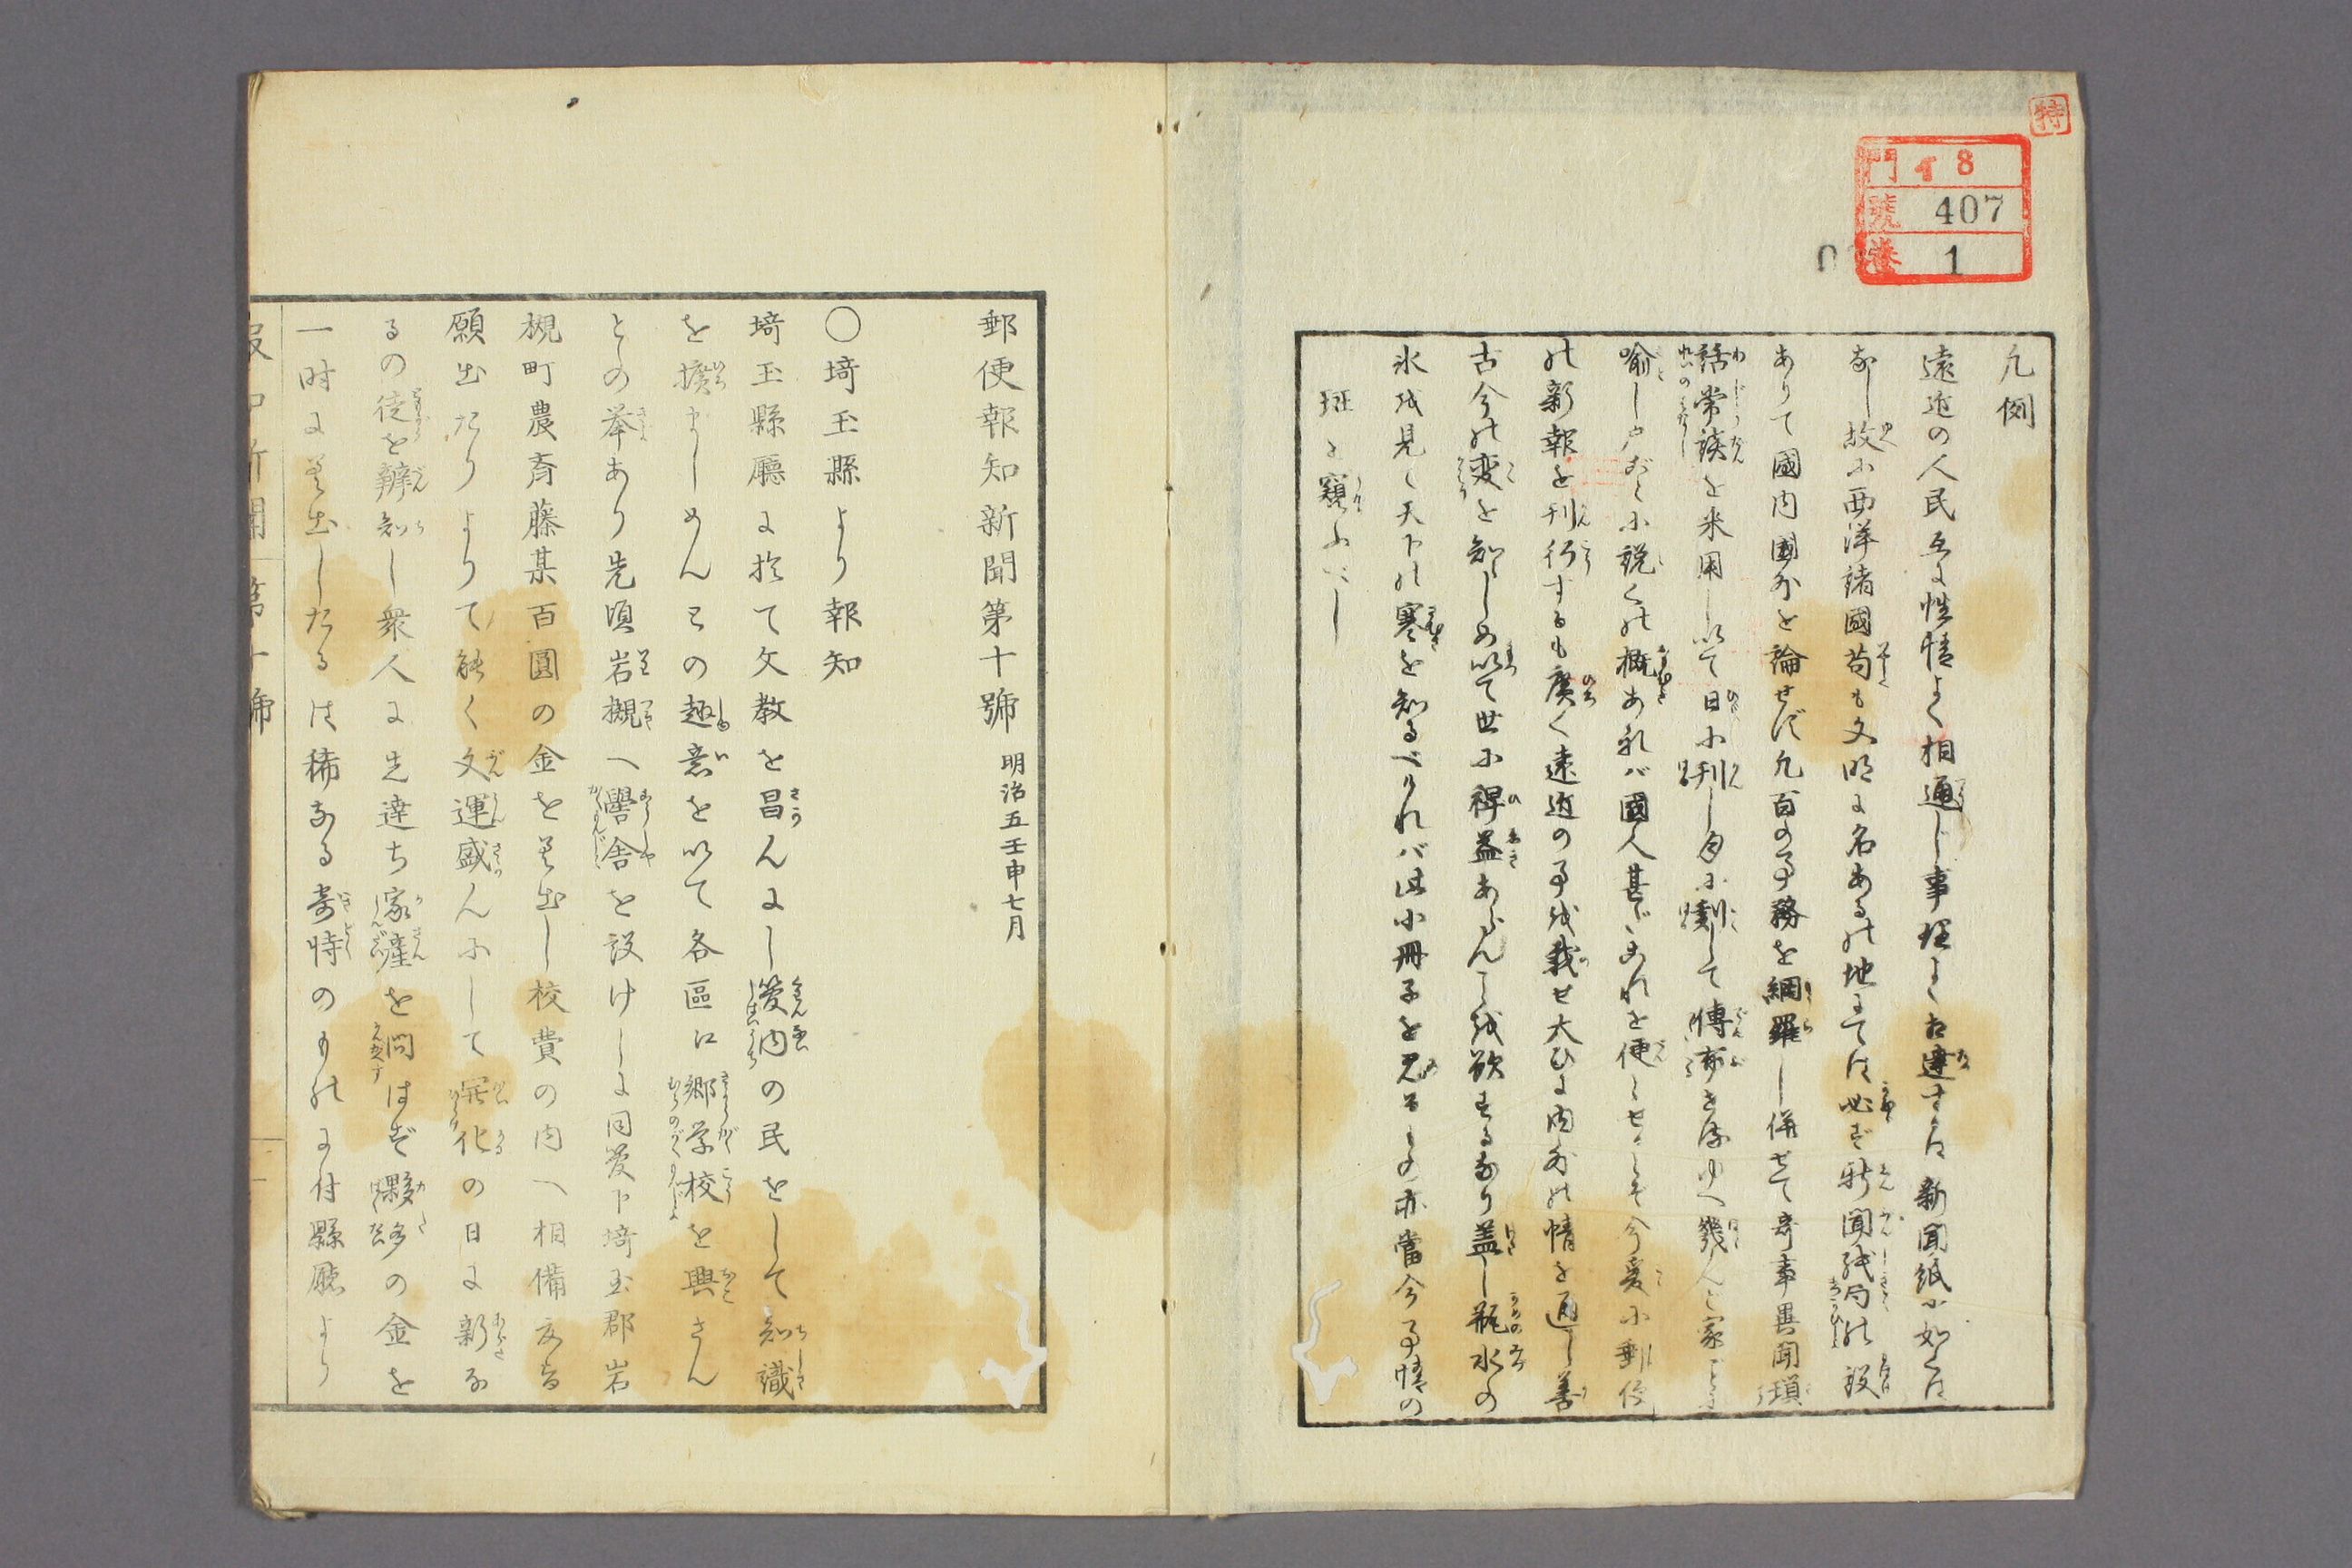 特
門 イ 8
號 407
卷 1
凡例
遠近の人民互に性情よく相通じ事理よく相達するは新聞紙に如くは
なし故に西洋諸國苟も文明に名ある地にては必ず新聞紙局の設
ありて國内國外を論せず凡百の事務を網羅し併せて奇事異聞瑣
話常談を采用し以て日に刊し月に刻して傳布せ
喩し戸ごとに説くの概あれバ國人甚だこれを便とせ今爰に郵便
の新報を刊行するも廣く遠近の事を載せ大ひに内外の情を通し善
古今の変を知らしめ以て世に裨益あらんことを欲するなり蓋し瓶水の
氷を見て天下の寒を知るべけれバ此小冊子を見るもの亦當今事情の
班を窺ふべし
郵便報知新聞第十號 明治五壬申七月
〇埼玉縣より報知
埼玉縣廳に於て文教を昌んにし管内の民をして知識
を擴ましめんとの趣意を以て各區に郷学校を興さん
との挙あり先頃岩槻へ黌舎を設けしに同管下埼玉郡岩
槻町農斉藤某百圓の金を差出し校費の内へ相備度旨
願出たりよりて能く文運盛んにして開化の日に新な
るの徒を辨知し衆人に先達ち家産を問はず夥多の金を
一時に差出したるは稀なる奇特のものに付縣廳より
報知新聞 第十號